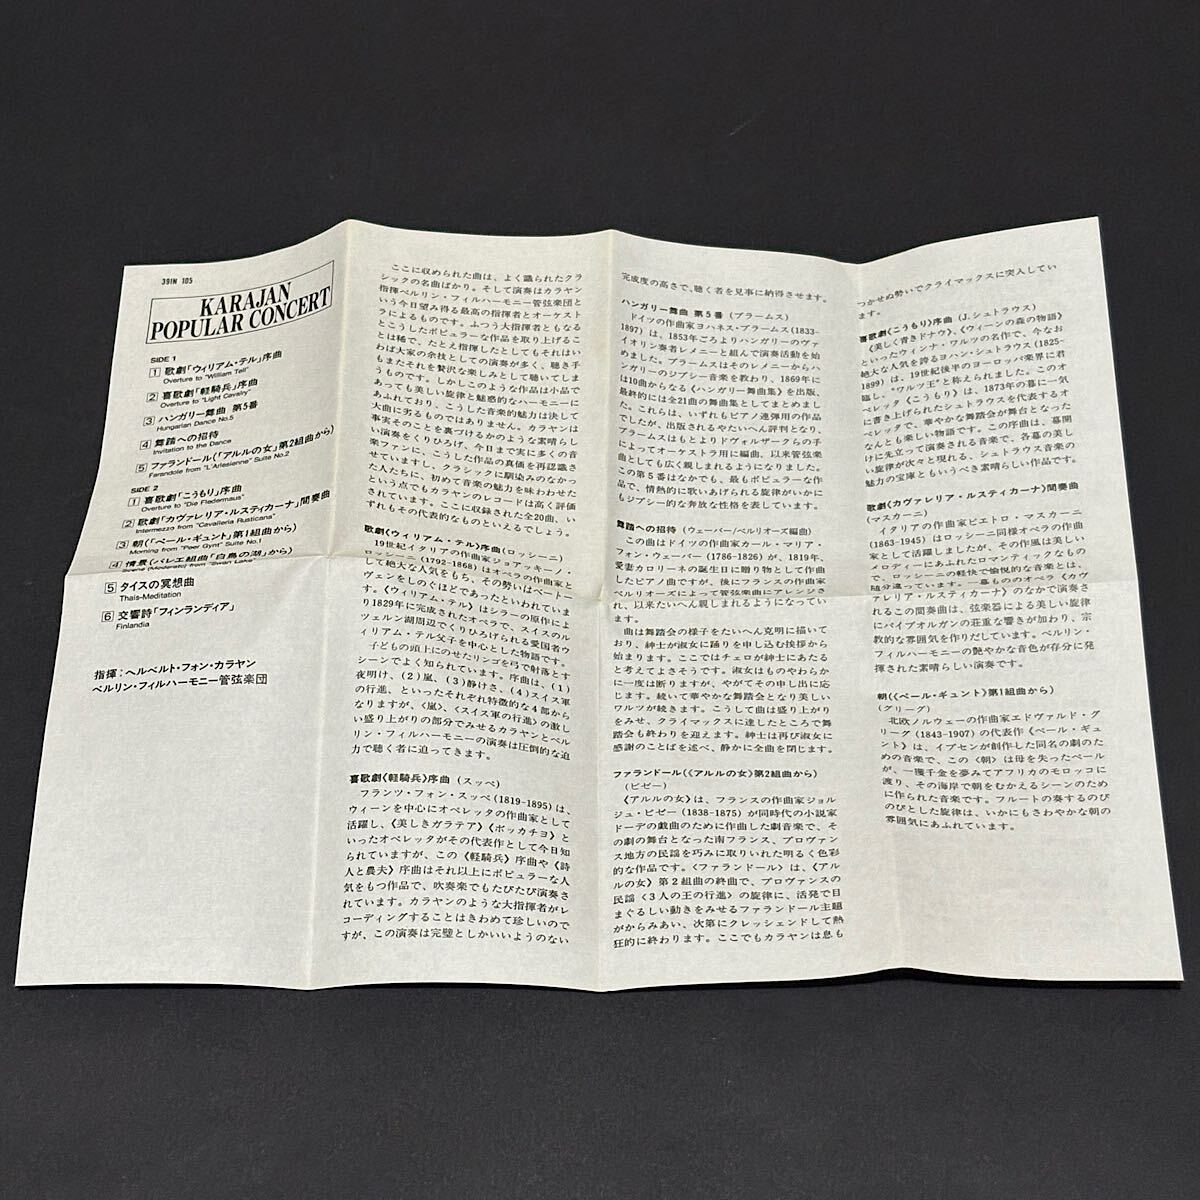 39IN 105
KARAJAN
POPULAR CONCERT
SIDE 1
1 歌劇「ウィリアム・テル」序曲
Overture to "William Tell"
2 喜歌劇「軽騎兵」序曲
Overture to "Light Cavalry"
3 ハンガリー舞曲 第5番
Hungarian Dance No.5
4 舞踏への招待
Invitation to the Dance
5 ファランドール(「アルルの女」第2組曲から)
Farandole from "L'Arlesienne" Suite No.2
SIDE 2
1 喜歌劇「こうもり」序曲
Overture to "Die Fledermaus"
2 歌劇「カヴァレリア・ルスティカーナ」間奏曲
Intermezzo from "Cavalleria Rusticana"
3 朝(「ペール・ギュント」第1組曲から)
Morning from "Peer Gynt" Suite No.1
4 情景(バレエ組曲「白鳥の湖」から)
Scene (Moderato) from "Swan Lake"
5 タイスの冥想曲
Thais-Meditation
6 交響詩「フィンランディア」
Finlandia
指揮：ヘルベルト・フォン・カラヤン
ベルリン・フィルハーモニー管弦楽団
ここに収められた曲は、よく識られたクラ
シックの名曲ばかり。そして演奏はカラヤン
指揮ベルリン・フィルハーモニー管弦楽団と
いう今日望み得る最高の指揮者とオーケスト
ラによるものです。ふつう大指揮者ともなる
とこうしたポピュラーな作品を取り上げるこ
とは稀で、たとえ指揮したとしてもそれはい
わば大家の余技としての演奏が多く、聴き手
もまたそれを贅沢な楽しみとして聴いてしま
うものです。しかしこのような作品は小品で
あっても美しい旋律と魅惑的なハーモニーに
あふれており、こうした音楽的魅力は決して
大曲に劣るものではありません。カラヤンは
事実そのことを裏づけるかのような素晴らし
い演奏をくりひろげ、今日まで実に多くの音
楽ファンに、こうした作品の真価を再認識さ
せていますし、クラシックに馴染みのなかっ
た人たちに、初めて音楽の魅力を味わわせた
という点でもカラヤンのレコードは高く評価
されています。ここに収録された全20曲、い
ずれもその代表的なものといえるでしょう。
歌劇〈ウィリアム・テル〉序曲(ロッシーニ)
19世紀イタリアの作曲家ジョアッキーノ・
ロッシーニ(1792-1868)はオペラの作曲家と
して絶大な人気をもち、その勢いはベートー
ヴェンをしのぐほどであったといわれていま
す。〈ウィリアム・テル〉はシラーの原作によ
り1829年に完成されたオペラで、スイスのル
ツェルン湖周辺でくりひろげられる愛国者ウ
ィリアム・テル父子を中心とした物語です。
子どもの頭上にのせたリンゴを弓で射落とす
シーンでよく知られています。序曲は、(1)
夜明け、(2)嵐、(3)静けさ、(4)スイス軍
の行進、といったそれぞれ特徴的な4部から
なりますが、〈嵐〉、〈スイス軍の行進〉の激し
い盛り上がりの部分でみせるカラヤンとベル
リン・フィルハーモニーの演奏は圧倒的な迫
力で聴く者に迫ってきます。
喜歌劇〈軽騎兵〉序曲 (スッペ)
フランツ・フォン・スッペ(1819-1895)は、
ウィーンを中心にオペレッタの作曲家として
活躍し、〈美しきガラテア〉〈ボッカチヨ〉と
いったオペレッタがその代表作として今日知
られていますが、この〈軽騎兵〉序曲や〈詩
人と農夫〉序曲はそれ以上にポピュラーな人
気をもつ作品で、吹奏楽でもたびたび演奏さ
れています。カラヤンのような大指揮者がレ
コーディングすることはきわめて珍しいので
すが、この演奏は完璧としかいいようのない
完成度の高さで、聴く者を見事に納得させます。
ハンガリー舞曲 第5番 (ブラームス)
ドイツの作曲家ヨハネス・ブラームス(1833-
1897)は、1853年ごろよりハンガリーのヴァ
イオリン奏者レメニーと組んで演奏活動を始
めました。ブラームスはそのレメニーからハ
ンガリーのジプシー音楽を教わり、1869年に
は10曲からなる〈ハンガリー舞曲集〉を出版、
最終的には全21曲の舞曲集としてまとめまし
た。これらは、いずれもピアノ連弾用の作品
でしたが、出版されるやたいへん評判となり、
ブラームスはもとよりドヴォルザークらの手
によってオーケストラ用に編曲、以来管弦楽
曲としても広く親しまれるようになりました。
この第5番はなかでも、最もポピュラーな作
品で、情熱的に歌いあげられる旋律がいかに
もジプシー的な奔放な性格を表しています。
舞踏への招待 (ウェーバー/ベルリオーズ編曲)
この曲はドイツの作曲家カール・マリア・
フォン・ウェーバー(1786-1826)が、1819年、
愛妻カロリーネの誕生日に贈り物として作曲
したピアノ曲ですが、後にフランスの作曲家
ベルリオーズによって管弦楽曲にアレンジさ
れ、以来たいへん親しまれるようになってい
ます。
曲は舞踏会の様子をたいへん克明に描いて
おり、紳士が淑女に踊りを申し込む挨拶から
始まります。ここではチェロが紳士にあたる
と考えてよさそうです。淑女はものやわらか
に一度は断りますが、やがてその申し出に応
じます。続いて華やかな舞踏会となり美しい
ワルツが続きます。こうして曲は盛り上がり
をみせ、クライマックスに達したところで舞
踏会も終わりを迎えます。紳士は再び淑女に
感謝のことばを述べ、静かに全曲を閉じます。
ファランドール(〈アルルの女〉第2組曲から)
(ビゼー)
〈アルルの女〉は、フランスの作曲家ジョル
ジュ・ビゼー(1838-1875)が同時代の小説家
ドーデの戯曲のために作曲した劇音楽で、そ
の劇の舞台となった南フランス、プロヴァン
ス地方の民謡を巧みに取りいれた明るく色彩
的な作品です。〈ファランドール〉は、〈アル
ルの女〉第2組曲の終曲で、プロヴァンスの
民謡〈3人の王の行進〉の旋律に、活発で目
まぐるしい動きをみせるファランドール主題
がからみあい、次第にクレッシェンドして熱
狂的に終わります。ここでもカラヤンは息も
つかせぬ勢いでクライマックスに突入してい
ます。
喜歌劇〈こうもり〉序曲 (J.シュトラウス)
〈美しく青きドナウ〉、〈ウィーンの森の物語〉
といったウィンナ・ワルツの名作で、今なお
絶大な人気を誇るヨハン・シュトラウス(1825-
1899)は、19世紀後半のヨーロッパ楽界に君
臨し、"ワルツ王"と称えられました。このオ
ペレッタ〈こうもり〉は、1873年の暮に一気
に書き上げられたシュトラウスを代表するオ
ペレッタで、華やかな舞踏会が舞台となった
なんとも楽しい物語です。この序曲は、幕開
けに先立って演奏される音楽で、各幕の美し
い旋律が次々と現れる、シュトラウス音楽の
魅力の宝庫ともいうべき素晴らしい作品です。
歌劇〈カヴァレリア・ルスティカーナ〉間奏曲
(マスカーニ)
イタリアの作曲家ピエトロ・マスカーニ
(1863-1945)はロッシーニ同様オペラの作曲
家として活躍しましたが、その作風は美しい
メロディーにあふれたロマンティックなもの
で、ロッシーニの軽快で愉悦的な音楽とは、
随分違っています。一幕もののオペラ〈カヴ
ァレリア・ルスティカーナ〉のなかで演奏さ
れるこの間奏曲は、弦楽器による美しい旋律
にパイプオルガンの荘重な響きが加わり、宗
教的な雰囲気を作りだしています。ベルリン・
フィルハーモニーの艶やかな音色が存分に発
揮された素晴らしい演奏です。
朝(〈ペール・ギュント〉第1組曲から)
(グリーグ)
北欧ノルウェーの作曲家エドヴァルド・グ
リーグ(1843-1907)の代表作〈ペール・ギュ
ント〉は、イプセンが創作した同名の劇のた
めの音楽で、この〈朝〉は母を失ったペール
が、一獲千金を夢みてアフリカのモロッコに
渡り、その海岸で朝をむかえるシーンのため
に作られた音楽です。フルートの奏するのび
のびとした旋律は、いかにもさわやかな朝の
雰囲気にあふれています。